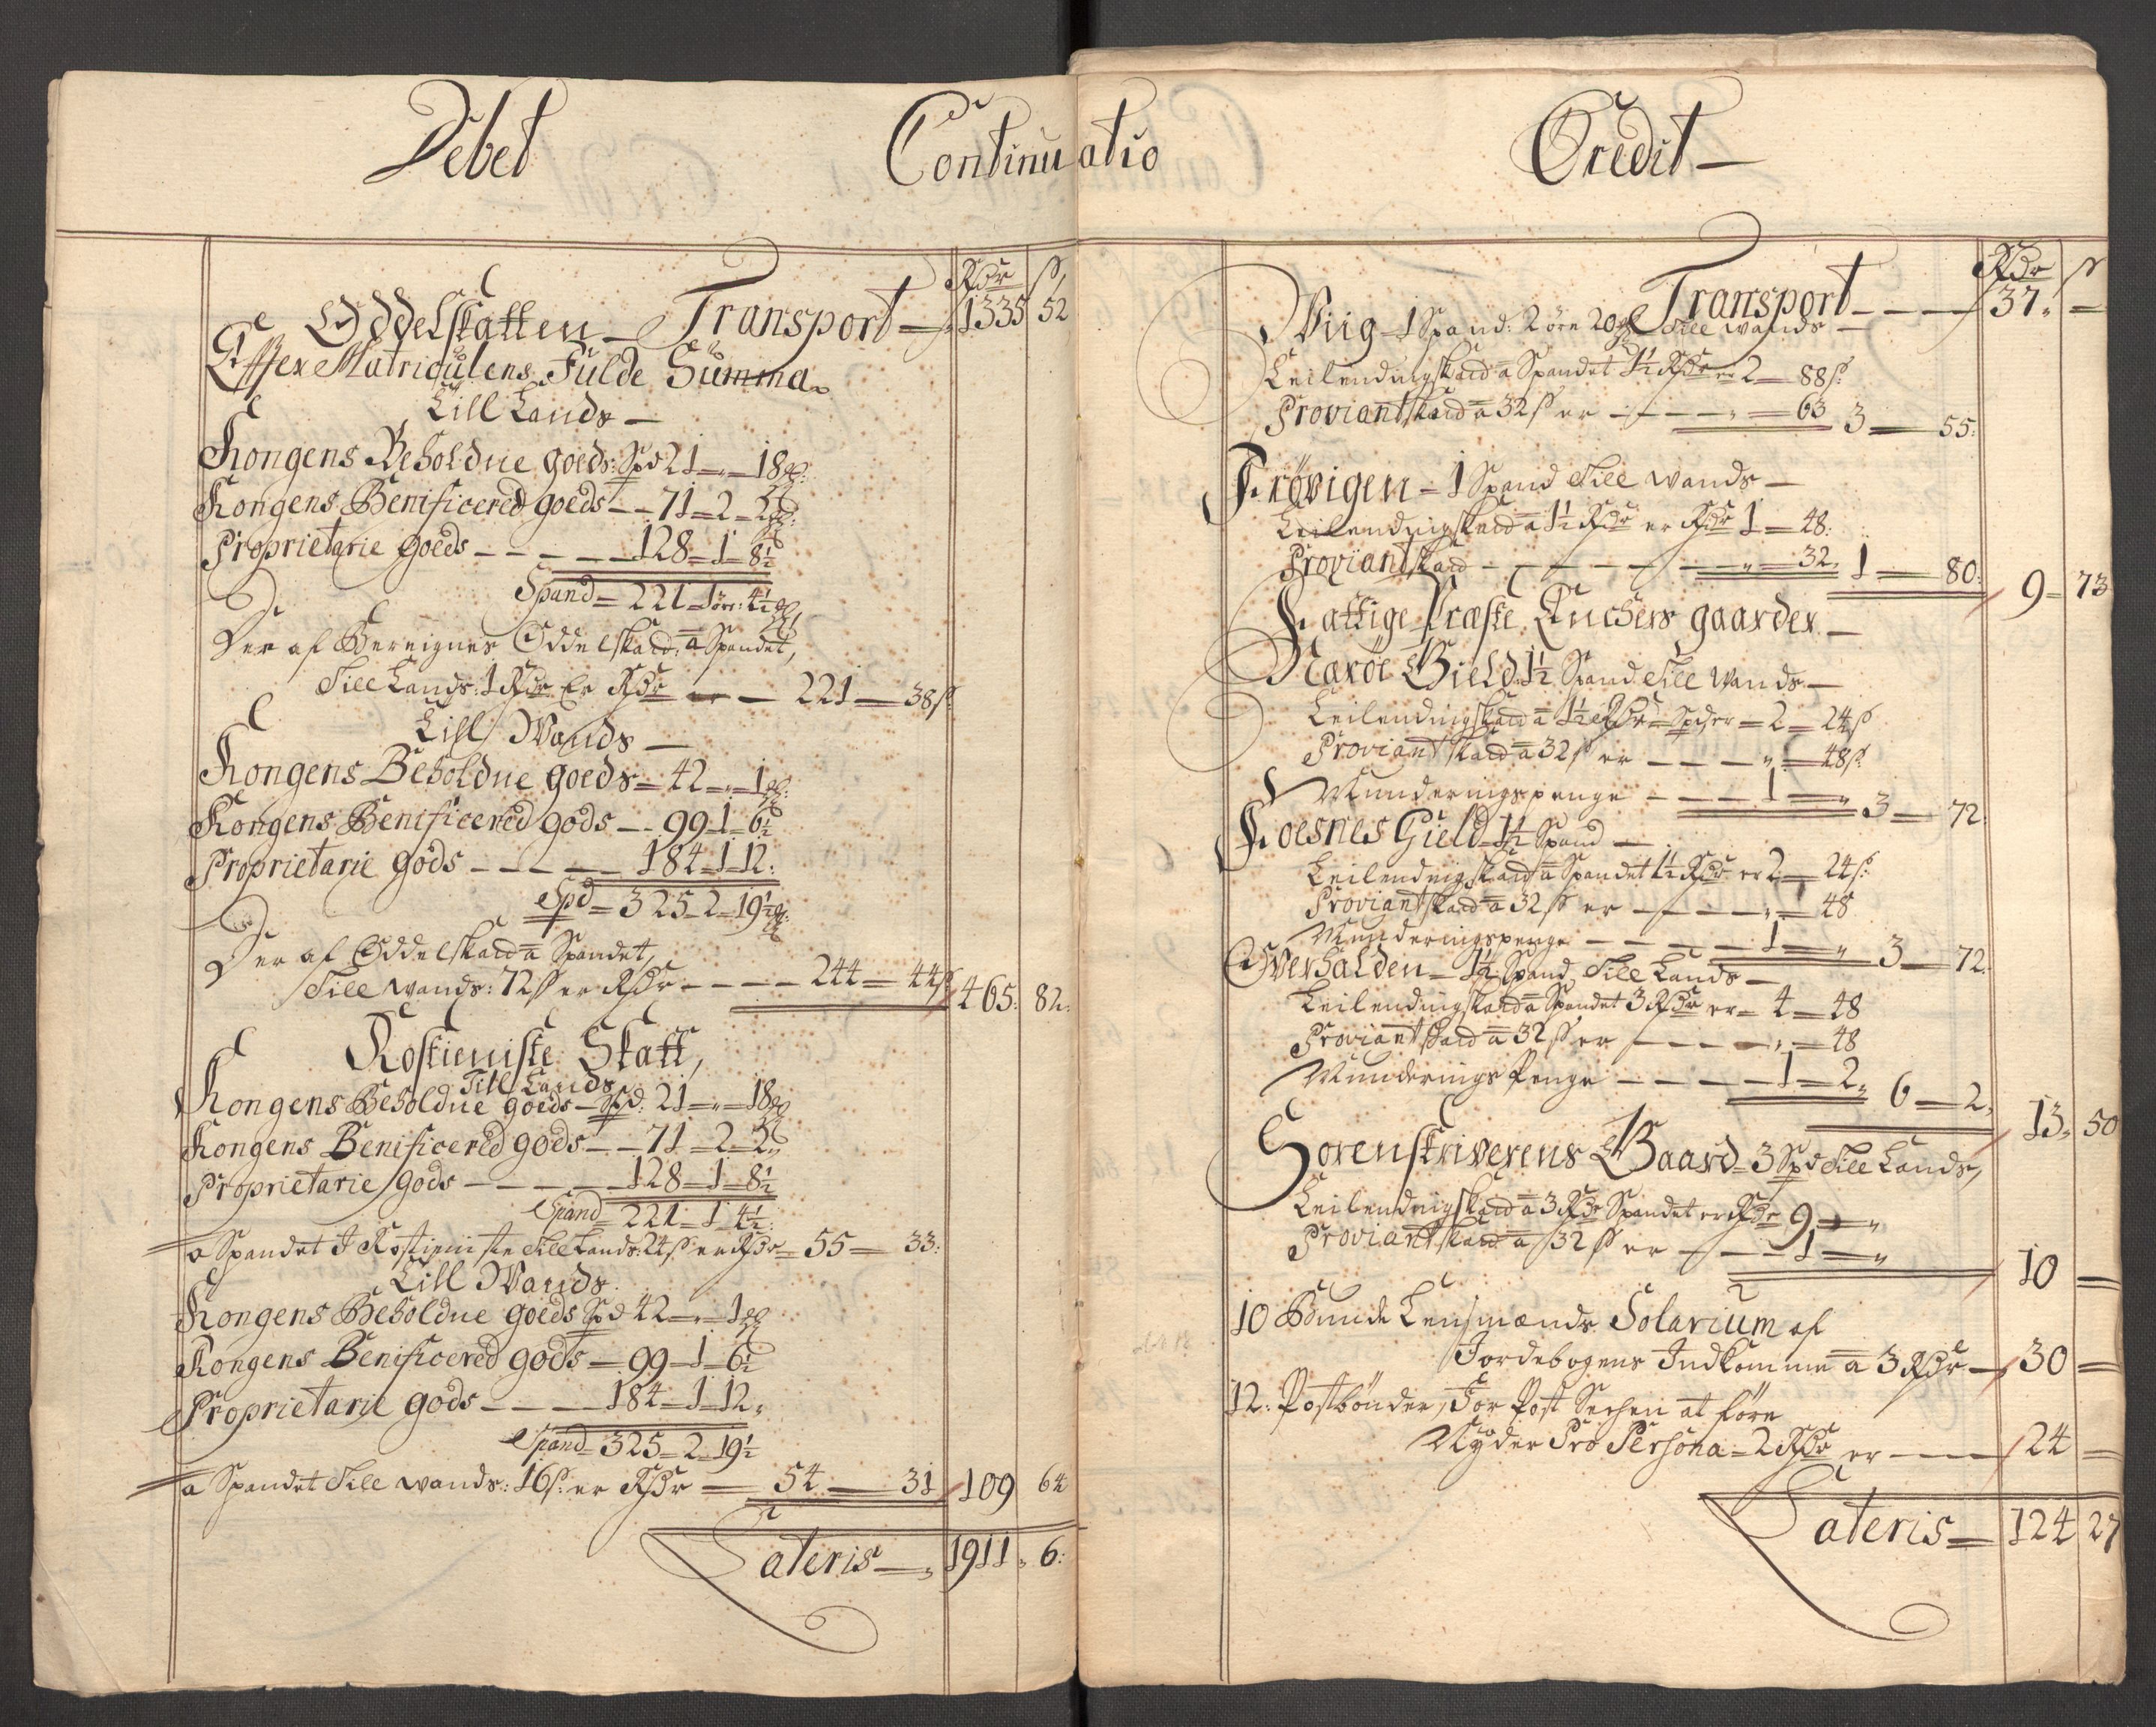 Debet Continuatio Credit
Rdr ß
Oddelskatten Transport 1335 52
Effter Matriculens Fulde Summa
Till Lands
Kongens Beholdne goeds: Spd 21 — „ — 18
Kongens Benificered goeds — 71 — 2 — 2
Proprietarie goeds — 128 — 1 — 8½
Spand = 221 — 1 öre: 4½
Der af Bereignes Oddelskatd: a Spandet,
Till Lands: 1 Rdr Er Rdr — 221 — 38 ß
Till Wands
Kongens Beholdne goeds = 42 — „ — 1
Kongens Benificered gods — 99 — 1 — 6½
Proprietarie gods — 184 — 1 — 12:
Spd = 325 — 2 — 19½
Der af Oddelskatd a Spandet,
Till wands: 72 ß er Rdr — 244 — 44 ß 465: 82:
Rostieniste Skatt,
Till Lands
Kongens Beholdne goeds — Spd: 21 — „ — 18
Kongens Benificered gods — 71 — 2 — 2
Proprietarie gods — 128 — 1 — 8½
Spand = 221 — 1 — 4½:
a Spandet I Rostieniste Till Lands: 24 ß er Rdr = 55 — 33:
Till Wands
Kongens Beholdne goeds Spd 42 — „ — 1
Kongens Benificered gods — 99 — 1 — 6½
Proprietarie gods — 184 — 1 — 12
Spand = 325 — 2 — 19½
a Spandet Till wands: 16 ß: er Rdr — 54 — 31 109 64
Lateris — 1911 „ 6:
Rdr ß
Transport — 37 „ —
Wiig — 1 Spand: 2 öre 20 Till wands —
Leilendingskatd a Spandet 1½ Rdr er 2 — 88 ß:
Proviantskatd a 32 ß er — „ — 63 3 — 55:
Frövigen — 1 Spand Till wands —
Leilendingskatd a 1½ Rdr er Rdr 1 — 48:
Proviantskatd — „ — 32 1 — 80: 9 — 73
Fattige Præste Enchers gaarder —
Naröe Gield 1½ Spand Till Wands —
Leilendingskatd a 1½ Rdr Spd er = 2 — 24 ß
Proviantskatd a 32 ß er — „ — 48 ß:
Munderingspenge — 1 — „ 3 — 72
Foesnes Gield 1½ Spand —
Leilendingskatd a Spandet 1½ Rdr er 2 — 24 ß:
Proviantskatd a 32 ß er — „ — 48
Munderingspenge — 1 — „ 3 — 72.
Overhalden — 1½ Spand Till Lands —
Leilendingskatd a Spandet 3 Rdr er = 4 — 48
Proviantskatd a 32 ß er — „ — 48
Munderings Penge — 1 — 2 „ 6 — 2, 13 „ 50
Sorenskriverens Gaard = 3 Spd Till Lands,
Leilendingskatd a 3 Rdr Spandet er Rdr 9 — „
Proviantskatd a 32 ß er — 1 — „ 10 —
10 Bunde Lensmænds Solarium af
Jordebogens Indkomme a 3 Rdr — 30 —
12: Postbönder, For Post Sechen at före
Nyder Pro Persona = 2 Rdr er — 24 —
Lateris — 124 27